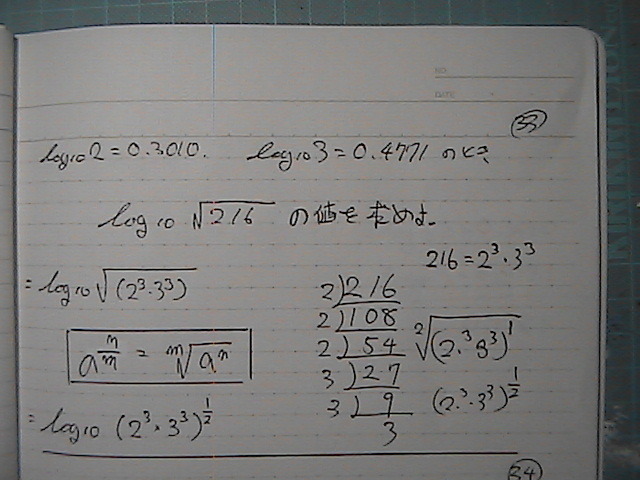 NO.
DATE
33
log10 2 = 0.3010. log10 3 = 0.4771 のとき、
log10 √216 の値を求めよ。
216 = 2³・3³
= log10 √(2³・3³)
2)216
2)108
2)54
3)27
3)9
3
²√(2・³3³)¹
a^(n/m) = ᵐ√aⁿ
(2・³・3³)^(1/2)
= log10 (2³・3³)^(1/2)
34